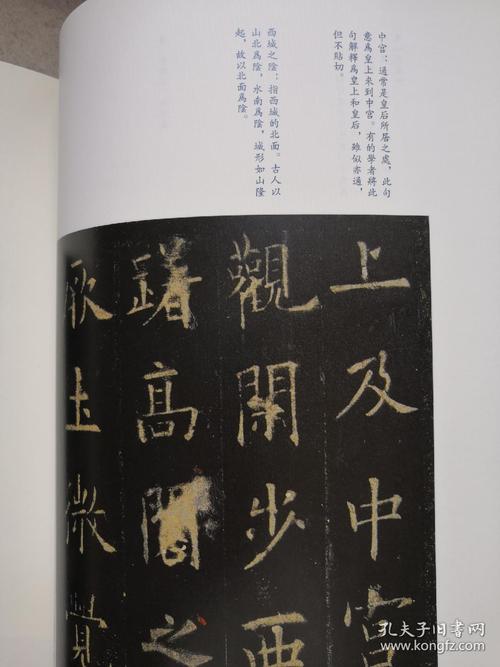 中宫：通常是皇后所居之處，此句
意爲皇上來到中宫。有的學者將此
句解釋爲皇上和皇后，雖似亦通，
但不貼切。
西城之陰：指西城的北面。古人以
山北爲陰，水南爲陰，城形如山隆
起，故以北面爲陰。
上及中宫
觀閑步西
躇高閣之
厥土微覺
孔夫子旧书网